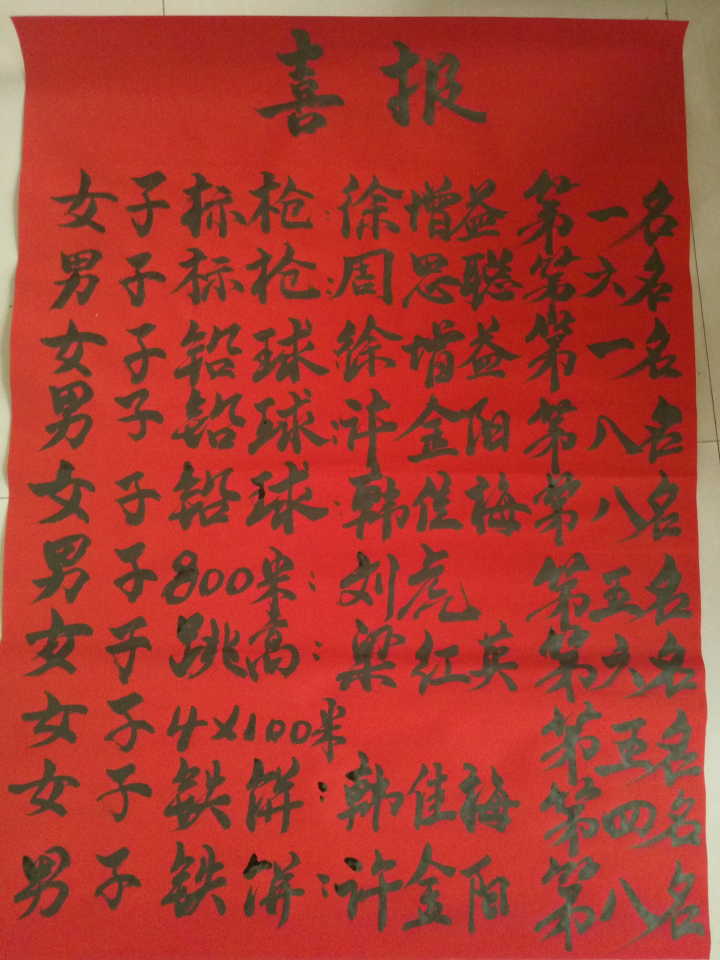 喜报
女子标枪:徐增益 第一名
男子标枪:周思聪 第六名
女子铅球 徐增益 第一名
男子铅球:许金阳 第八名
女子铅球:韩佳梅 第八名
男子800米:刘虎 第五名
女子跳高:梁红英 第六名
女子4×100米 第五名
女子铁饼:韩佳梅 第四名
男子铁饼:许金阳 第八名